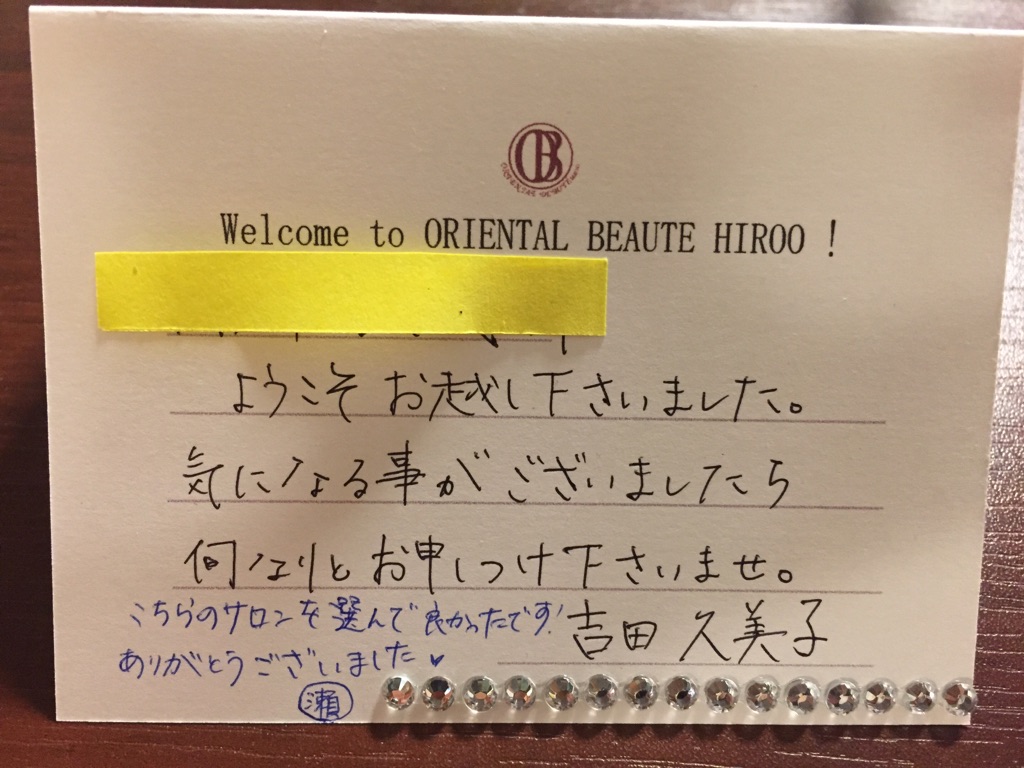 OB
Welcome to ORIENTAL BEAUTE HIROO !
ようこそ お越し下さいました。
気になる事がございましたら
何なりとお申しつけ下さいませ。
吉田 久美子
こちらのサロンを選んで良かったです!
ありがとうございました♥
瀬